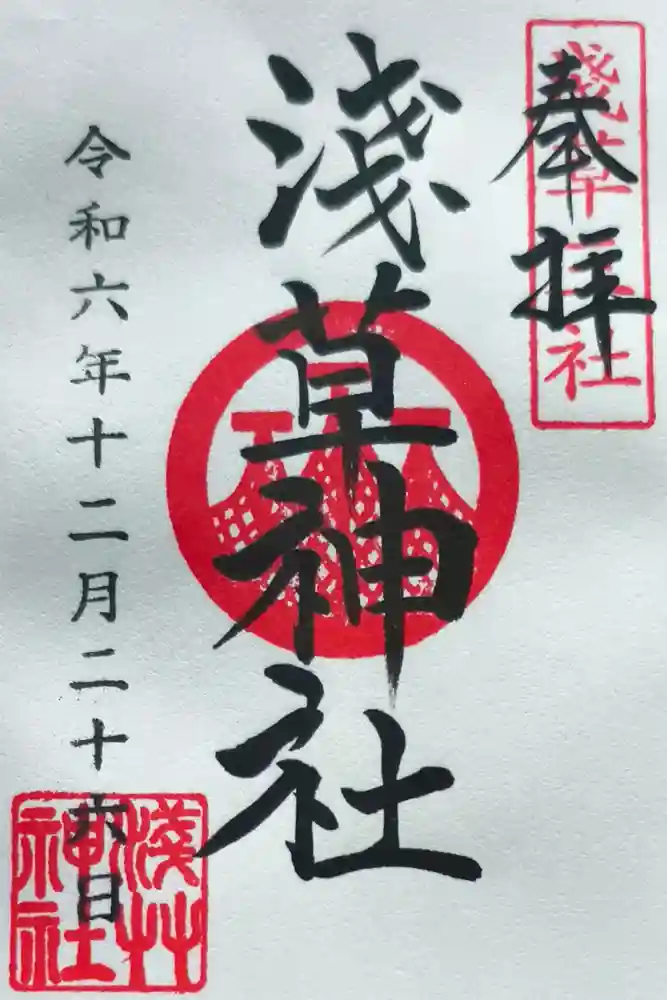 奉拝
淺草三社
淺草神社
令和六年十二月二十六日
淺草神社